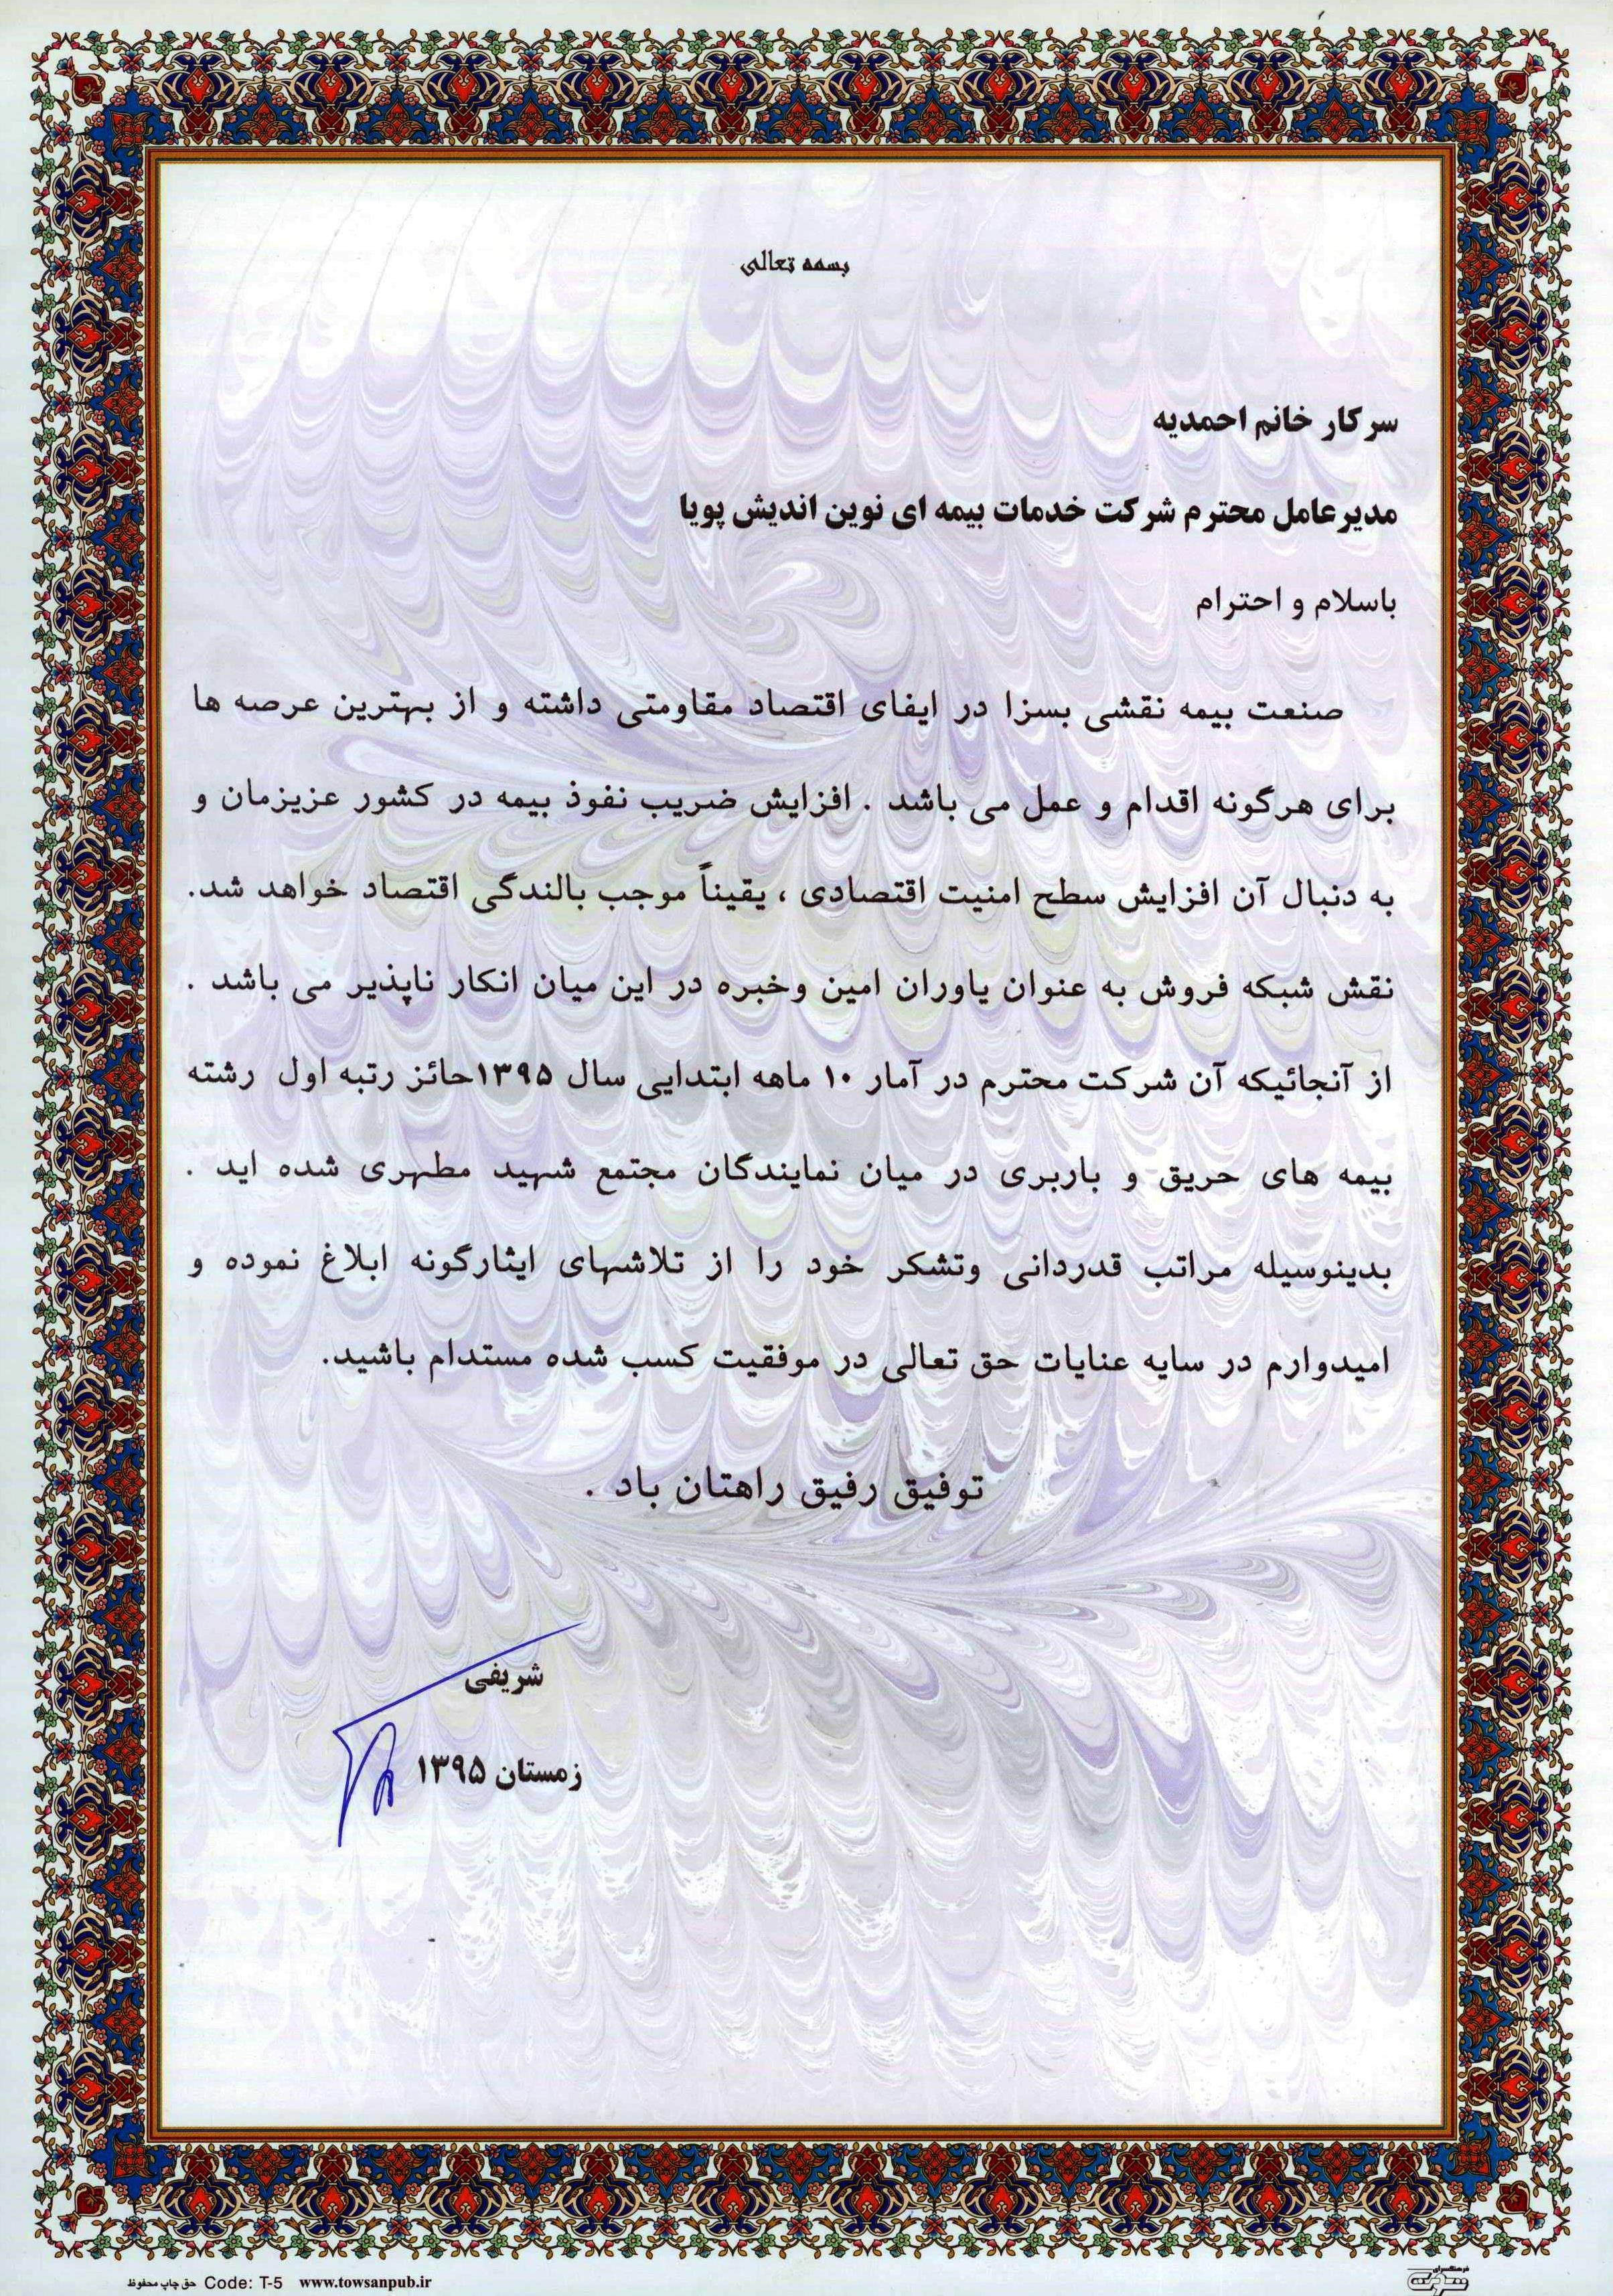 بسمه تعالی
سرکار خانم احمدیه
مدیرعامل محترم شرکت خدمات بیمه ای نوین اندیش پویا
باسلام و احترام
صنعت بیمه نقشی بسزا در ایفای اقتصاد مقاومتی داشته و از بهترین عرصه ها
برای هرگونه اقدام و عمل می باشد . افزایش ضریب نفوذ بیمه در کشور عزیزمان و
به دنبال آن افزایش سطح امنیت اقتصادی ، یقیناً موجب بالندگی اقتصاد خواهد شد.
نقش شبکه فروش به عنوان یاوران امین وخبره در این میان انکار ناپذیر می باشد .
از آنجائیکه آن شرکت محترم در آمار ۱۰ ماهه ابتدایی سال ۱۳۹۵حائز رتبه اول رشته
بیمه های حریق و باربری در میان نمایندگان مجتمع شهید مطهری شده اید .
بدینوسیله مراتب قدردانی وتشکر خود را از تلاشهای ایثارگونه ابلاغ نموده و
امیدوارم در سایه عنایات حق تعالی در موفقیت کسب شده مستدام باشید.
توفیق رفیق راهتان باد .
شریفی
زمستان ۱۳۹۵
حق چاپ محفوظ Code: T-5 www.towsanpub.ir